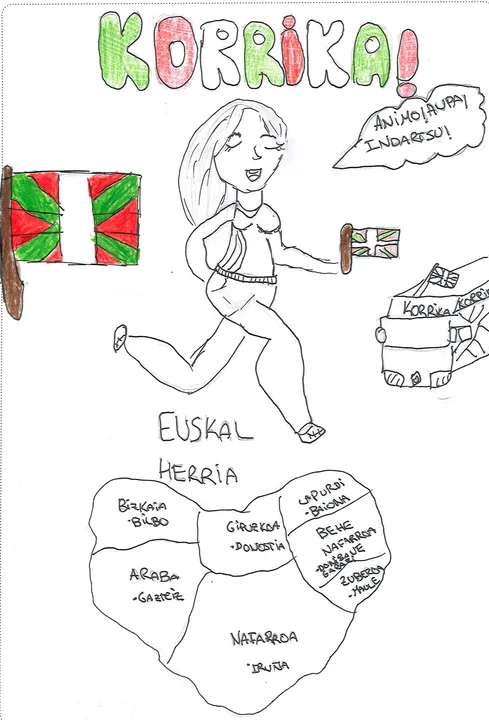 KORRIKA!
ANIMO!AUPA!
INDARTSU!
KORRIKA
KORRIK
EUSKAL
HERRIA
BIZKAIA
·BILBO
GIPUZKOA
·DONOSTIA
LAPURDI
·BAIONA
BEHE
NAFARROA
·DONIBANE
GARAZI
ZUBEROA
·MAULE
ARABA
·GAZTEIZ
NAFARROA
·IRUÑA